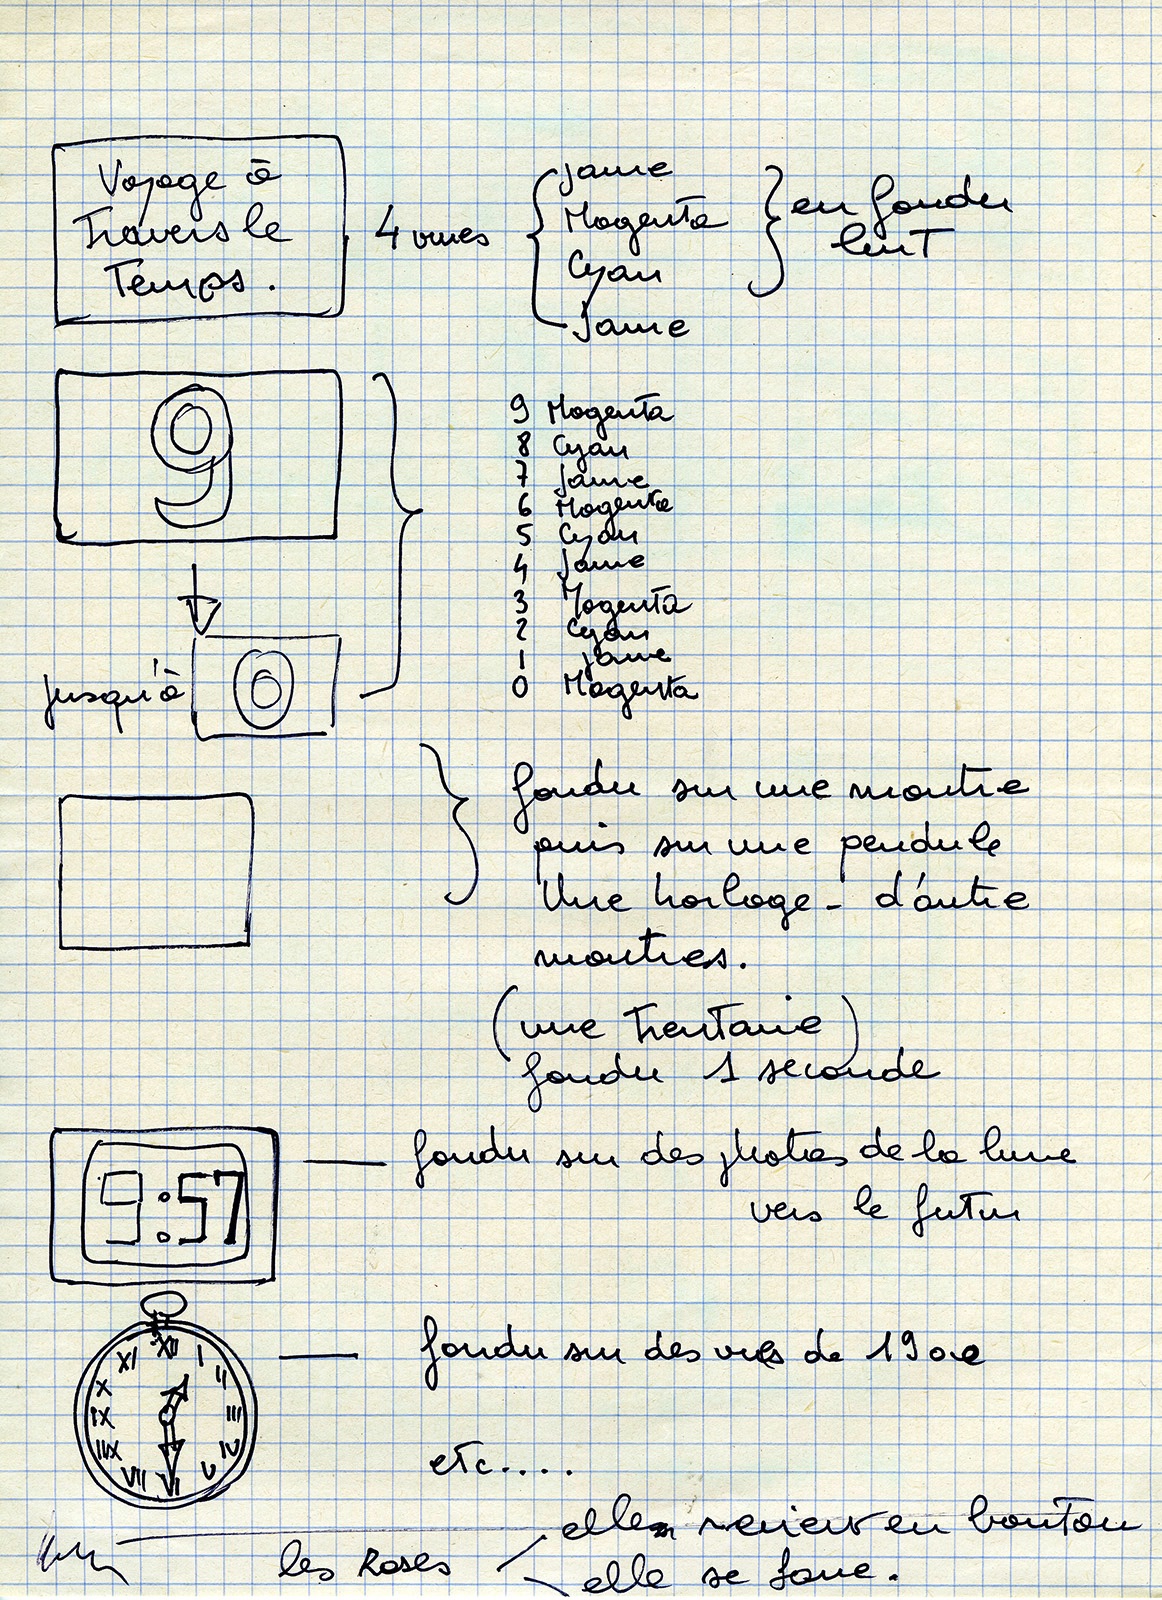 Voyage à
Travers le
Temps.
4 vues
Jaune
Magenta
Cyan
Jaune
en fondu
lent
9
9 Magenta
8 Cyan
7 Jaune
6 Magenta
5 Cyan
4 Jaune
3 Magenta
2 Cyan
1 Jaune
0 Magenta
jusqu'à
0
fondu sur une montre
puis sur une pendule
Une horloge - d'autre
montres.
(une trentaine)
fondu 1 seconde
9:57
fondu sur des photos de la lune
vers le futur
XII I II III IV V VI VII IIX IX X XI
fondu sur des vues de 1900
etc....
les Roses
elle en bouton
elle se fane.